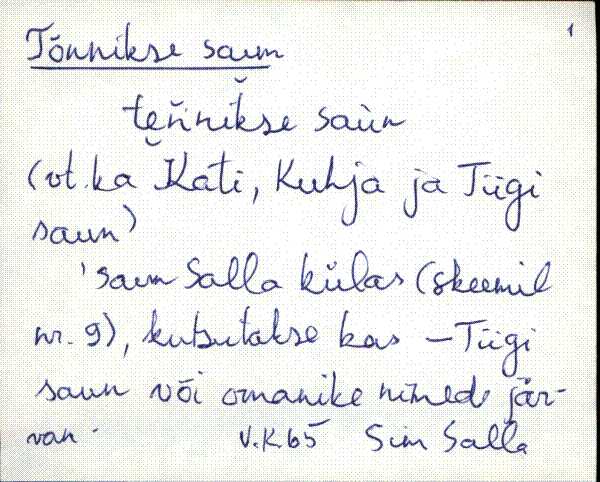 1
Tõnnikse saun
teňnikse saùn
(vt. ka Kati, Kuhja ja Tiigi
saun)
'saun Salla külas (skeemil
nr. 9), kutsutakse kas – Tiigi
saun või omanike nimede jär-
van V.K. 65 Sim Salla